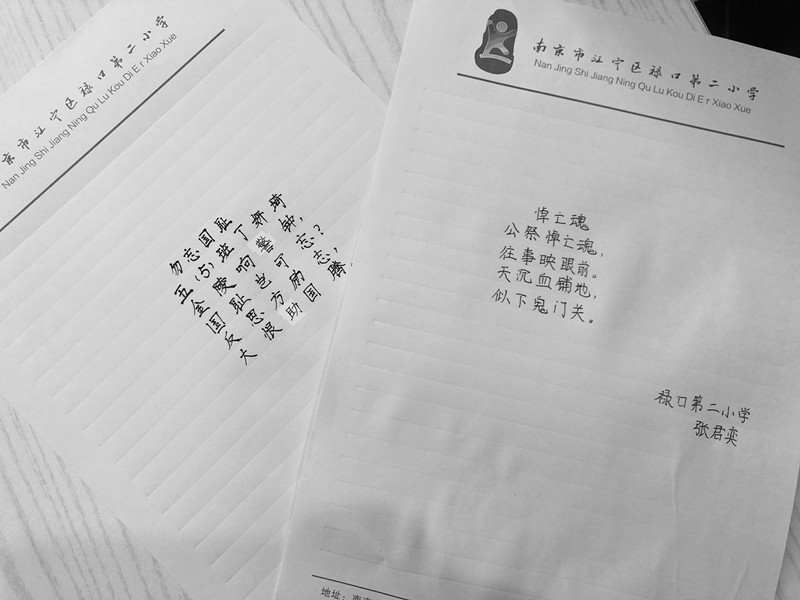 京市江宁区禄口第二小学
Nan Jing Shi Jiang Ning Qu Lu Kou Di E r Xiao Xue
勿忘国耻
五(5)班丁妍琦
金陵响警钟,
国耻岂可忘?
反思方励志,
大恨助国腾。
南京市江宁区禄口第二小学
Nan Jing Shi Jiang Ning Qu Lu Kou Di E r Xiao Xue
悼亡魂
公祭悼亡魂,
往事映眼前。
天沉血铺地,
似下鬼门关。
禄口第二小学
张君奕
地址: